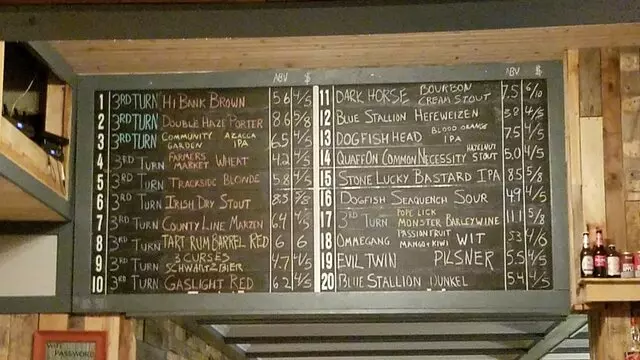 ABV $
1 3RD TURN HI BANK BROWN 5.6 4/5
2 3RD TURN DOUBLE HAZE PORTER 8.6 5/8
3 3RD TURN COMMUNITY GARDEN AZACCA IPA 6.5 4/5
4 3RD TURN FARMERS MARKET WHEAT 4.2 4/5
5 3RD TURN TRACKSIDE BLONDE 5.8 4/5
6 3RD TURN IRISH DRY STOUT
7 3RD TURN COUNTY LINE MARZEN 6.4
8 3RD TURN TART RUM BARREL RED 6 6
9 3RD TURN 3 CURSES SCHWARZBIER 4.7 4/5
10 3RD TURN GASLIGHT RED 6.2 4/5
ABV $
11 DARK HORSE BOURBON CREAM STOUT 7.5 6/10
12 BLUE STALLION HEFEWEIZEN 4/5
13 DOGFISHHEAD BLOOD ORANGE IPA 7.5 4/5
14 QUAFF ON COMMON NECESSITY HAZELNUT STOUT 5.0 4/5
15 STONE LUCKY BASTARD IPA 8.5 5/8
16 DOGFISH SEAQUENCH SOUR 4.9 4/5
17 3RD TURN POPE LICK MONSTER BARLEYWINE 11.1 5/8
18 OMMEGANG PASSIONFRUIT MANGO + KIWI WIT 5.3 4/6
19 EVIL TWIN PILSNER 5.5 4/5
20 BLUE STALLION DUNKEL 5.4 4/5
PASSWORD